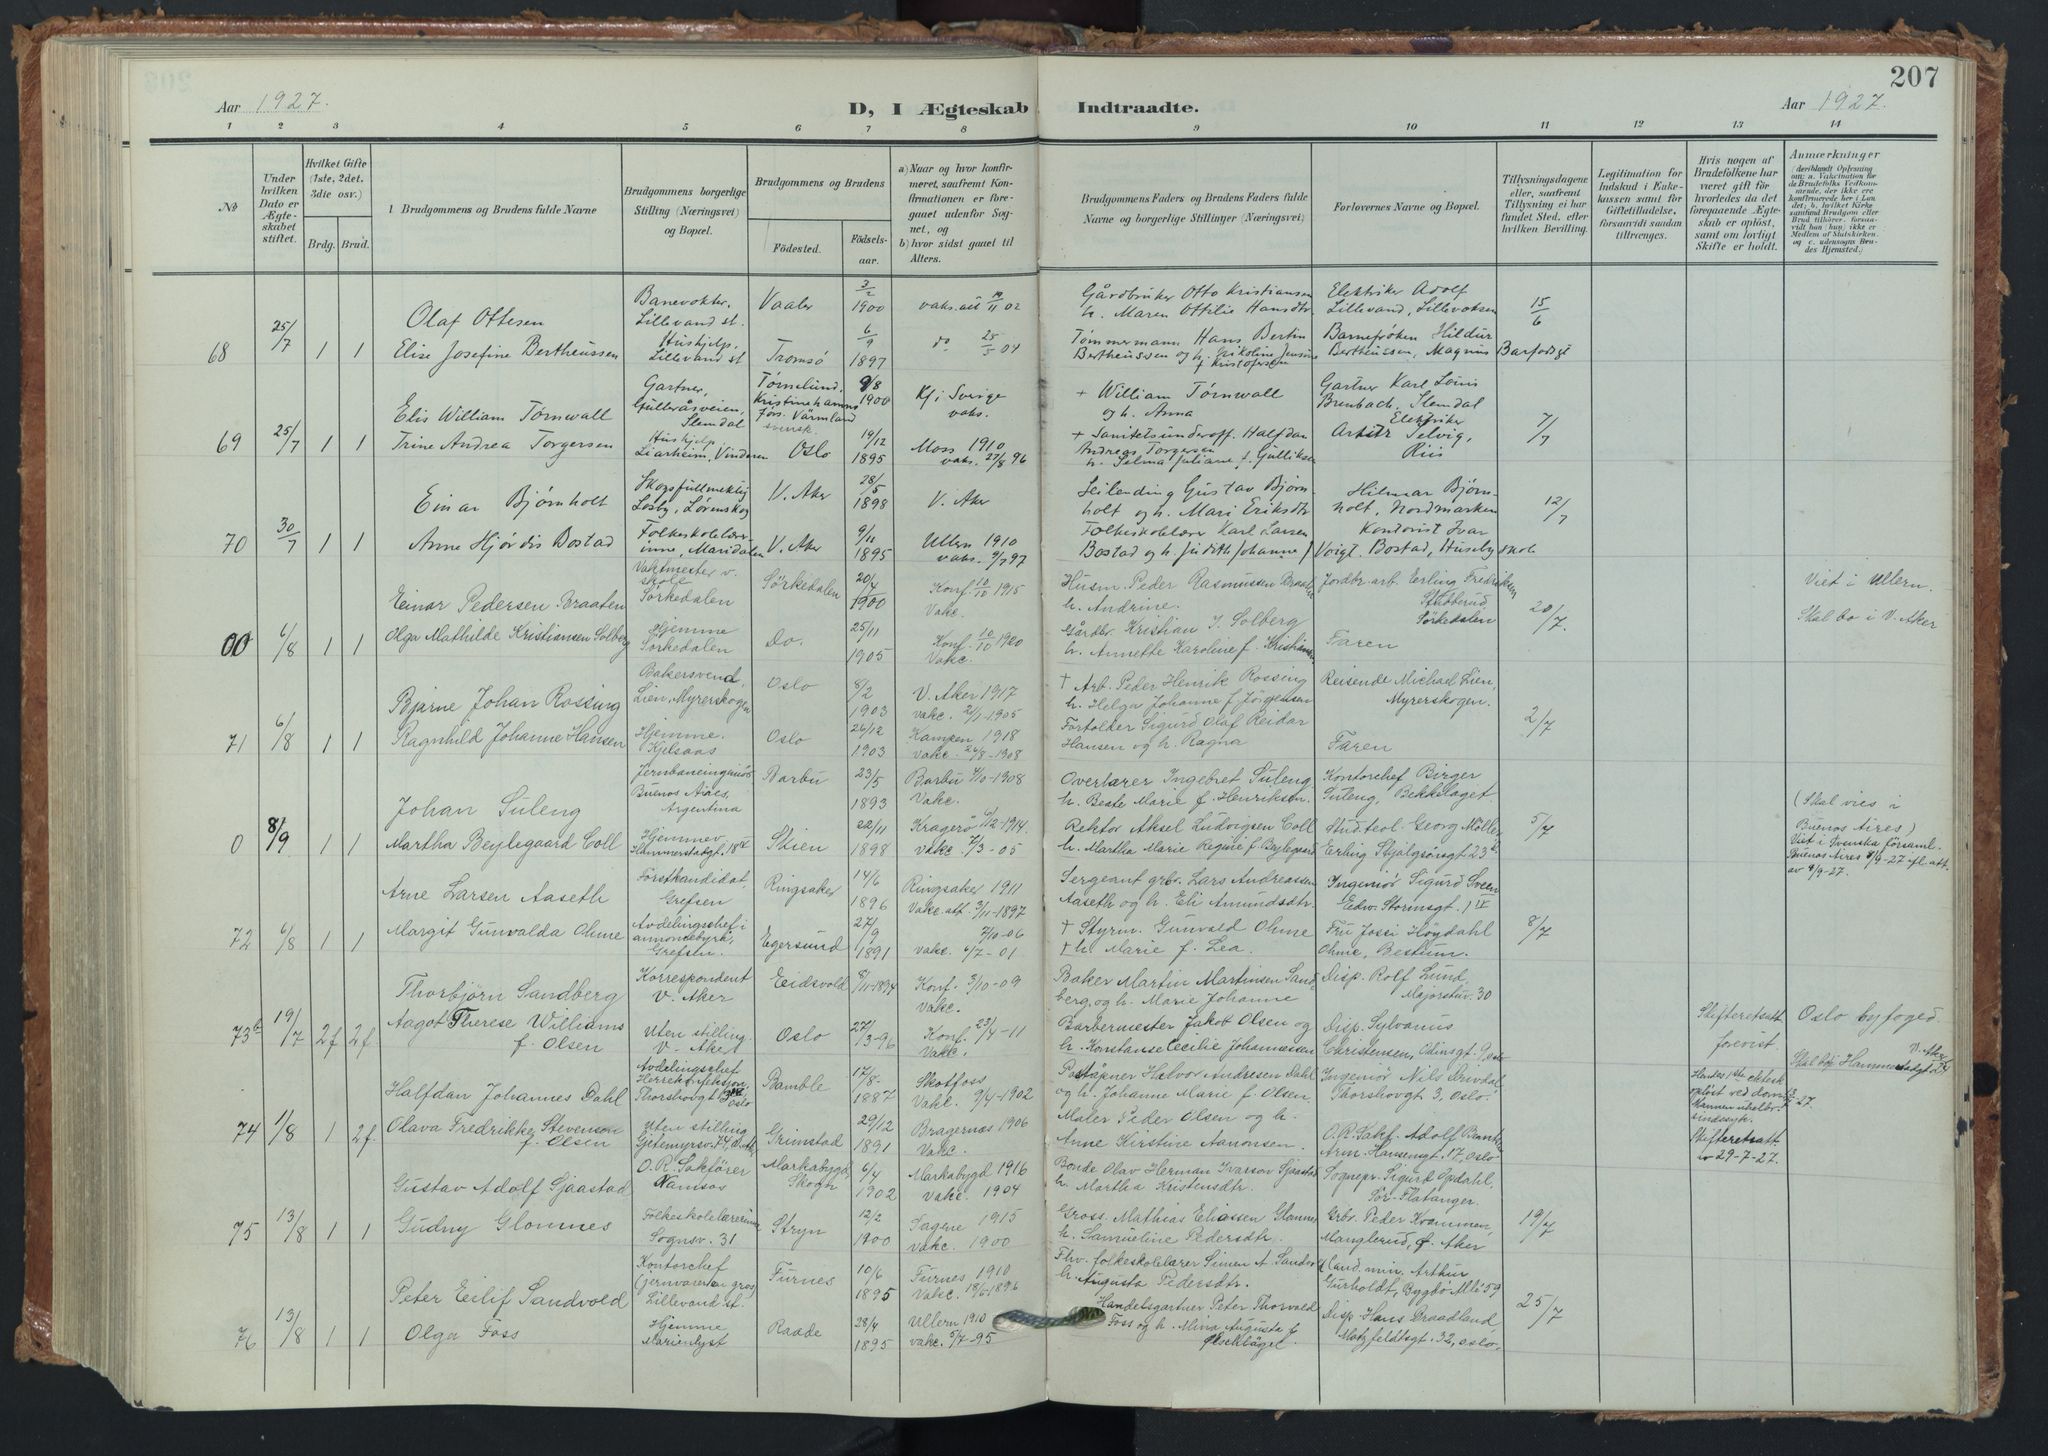 207
Aar 1927.
D, I Ægteskab Indtraadte.
Aar 1927.
1 2 3 4 5 6 7 8 9 10 11 12 13 14
No
Under hvilken Dato er Ægteskabet stiftet.
Hvilket Gifte (1ste, 2det, 3die osv.)
Brdg. Brud.
Brudgommens og Brudens fulde Navne
Brudgommens borgerlige Stilling (Næringsvei) og Bopæl.
Brudgommens og Brudens
Födested.
Födselsaar.
a) Naar og hvor konfirmeret, saafremt Konfirmationen er foregaaet udenfor Sognet, og
b) hvor sidst gaaet til Alters.
Brudgommens Faders og Brudens Faders fulde Navne og borgerlige Stillinger (Næringsvei)
Forlovernes Navne og Bopæl.
Tillysningsdagene eller, saafremt Tillysning ei har fundet Sted, efter hvilken Bevilling.
Legitimation for Indskud i Enkekassen samt for Giftetilladelse, forsaavidt saadan tiltrænges.
Hvis nogen af Brudefolkene har været gift för hvorledes da det foregaaende Ægteskab er oplöst, samt om lovligt Skifte er holdt.
Anmærkninger
68 25/7 1 1
Olaf Ottesen
Banevokter, Lillevand st.
Vaaler
3/2 1900
vaks. att 19/11 02
Gårdbruker Otto Kristiansen
h. Maren Ottilie Hansdtr
Elektriker Adolf
Lillevand, Lillevoksen
15/6
Elise Josefine Bertheussen
Hushjelp, Lillevand st
Tromsö
6/9 1897
do 25/5 04
Tømmermann Hans Bertin
Bertheussen og h. Grikoline Jensine f Kristofersen
Barnefrøken Hildur
Bertheussen, Magnus Barfodsgt
69 25/7 1 1
Elis William Tornwall
Gartner, Gulleråsveien, Slemdal
Tørnelund, Kristinehamns förs. Värmland svensk.
9/8 1900
Kf i Sverige
vaks.
+ William Tørnwall
og h. Anna
Gartner Karl Louis
Brenbach, Slemdal
7/7
Trine Andrea Torgersen
Hushjelp Liarheim, Vinderen
Oslo
19/12 1895
Moss 1910
vaks. 27/8 96
+ Sanitetsunderoff. Halfdan
Andreas Torgersen
h. Selma Juliane f. Gulliksen
Elektriker
Selvig,
Riis
70 30/7 1 1
Einar Bjørnholt
Skogsfullmektig Losby, Lørenskog
V. Aker
28/5 1898
V. Aker
Leilending Gustav Bjørn-
holt og h. Mari Eriksdtr
Hilmar Bjørn-
holt, Nordmarken
12/7
Anne Hjørdis Bostad
Folkeskolelærerinne, Maridalen
V. Aker
9/11 1895
Ullern 1910
vaks. 9/7 97
Folkeskolelær Karl Larsen
Bostad og h. Judith Johanne f
Kontorist Ivar
Voigt Bostad, Huseby skole
00 6/8 1 1
Einar Pedersen Braaten
Vaktmester v. skole Sörkedalen
Sörkedalen
20/4 1900
Konf. 10/10 1915
Vakc.
Husm. Peder Rasmussen Braaten
h. Andrine.
Jordbr. arb. Erling Fredriksen
Stubberud
Sörkedalen
20/7.
Viet i Ullern.
Skal bo i V. Aker
Olga Mathilde Kristiansen Solberg
Hjemme Sörkedalen
Do.
25/11 1905
Konf. 10/10 1920
Vakc.
Gårdbr. Kristian J. Solberg
h. Annette Karoline f. Kristiansen
Faren
71 6/8 1 1
Bjarne Johan Rossing
Bakersvend, Lien, Myrerskogen
Oslo
8/2 1903
V. Aker 1917
vakc. 2/1-1905
† Arb. Peder Henrik Rossing
h. Helga Johanne f Jörgensen
Reisende Michael Lien,
Myrerskogen.
2/7
Ragnhild Johanne Hansen
Hjemme. Kjelsaas
Oslo
26/12 1903
Kampen 1918
vakc. 26/8-1908
Fortolder Sigurd Olaf Reidar
Hansen og h. Ragna
Faren
0 8/9 1 1
Johan Suleng
Jernbaneingeniör Buenos Aires, Argentina
Barbu
23/5 1893
Barbu 4/10-1908
Vakc.
Overlærer Ingebret Suleng
h. Beate Marie f. Henriksen
Kontorchef Birger
Suleng, Bekkelaget.
5/7
(Skal vies i
Buenos Aires)
Viet i Svenska församl.
Buenos Aires 8/9-27 ifl. att.
av 8/9-27.
Martha Beylegaard Coll
Hjemmev. Hammerstadgt. 18 IV
Skien
22/11 1898
Kragerö 6/12-1914.
vakc. 7/3-05
Rektor Aksel Ludvigsen Coll
h. Martha Marie Regine f. Beylegaard
Stud teol. Georg Möller
Erling Skjalgsönsgt 23b
72 6/8 1 1
Arne Larsen Aaseth
Forstkandidat, Grefsen
Ringsaker
14/6 1896
Ringsaker 1911
Vakc. att. 3/11-1897
Sergeant grbr. Lars Andreassen
Aaseth og h. Eli Amundsdtr.
Ingeniör Sigurd Sveen
Edv. Stormsgt. 1 IV
8/7
Margit Gunvalda Ohme
Avdelingschef i annoncebyrå, Grefsen
Egersund
27/9 1891
7/10-06
vakc. 6/7-01
† Styrm. Gunvald Ohme
† h. Marie f. Lea.
Fru Jossi Høydahl
Ohme, Bestum.
73b 19/7 2f 2f.
Thorbjörn Sandberg
Korrespondent V. Aker
Eidsvold
8/11-1894
Konf. 3/10-09
Vakc.
Baker Martin Martinsen Sand-
berg, og h. Marie Johanne
Disp. Rolf Lund,
Majorstuv. 30
Skifteretsatt
forevist.
Oslo byfoged.
Aagot Therese Williams
f. Olsen
Uten stilling. V. Aker
Oslo
27/3-96
Konf. 23/4-11
Vakc.
Barbermester Jakob Olsen og
h. Konstanse Cecilie Johannessen
Disp. Sylvanus
Christensen, Odinsgt. 9, Oslo
74 1/8 1 2f.
Halfdan Johannes Dahl
Avdelingschef Thorshovgt 3 Oslo
Bamble
17/8- 1887
Skotfoss
Vakc. 9/4-1902
Poståpner Halvor Andresen Dahl
og h. Johanne Marie f. Olsen
Ingeniör Nils Drivdal
Thorshovgt 3, Oslo.
oplöst ved dom
Skifteretsatt
av 29-7-27.
Olava Fredrikke Stevenson
f. Olsen
Uten stilling
Grimstad
29/12 1891
Bragernes 1906
Vakc.
Maler Peder Olsen og h.
Anne Kirstine Aanonsen
O.R. Sakf. Adolf
Arm. Hansensgt. 17, Oslo
75 13/8 1 1
Gustav Adolf Sjaastad
O.R. Sakförer Namsos
Markabygd Skogn
6/4 1902
Markabygd 1916
Vakc. 1904
Bonde Olav Herman Ivarson Sjaastad
h. Martha Kristensdtr.
Sognepr. Sigurd Opdahl,
Sör-Flatanger.
19/7
Gudny Glomnes
Folkeskolelærerinne Sognsv. 31
Stryn
12/2 1900
Sagene 1915
Vakc. 1900
Gross. Mathias Eliassen Glomnes
h. Samueline Pedersdtr.
Grbr. Peder Kvammen,
Manglerud, Ö. Aker
76 13/8 1 1
Peter Eilif Sandvold
Kontorchef (jernvarer en gros) Lillevand st.
Furnes
10/6 1895
Furnes 1910
Vakc. 18/6-1896
Fhv. folkeskolelærer Simen A. Sandvold
h. Augusta Pedersdtr.
Cand. min. Arthur
Gurholdt, Bygdö Allé 59
25/7
Olga Foss
Hjemme Marienlyst
Raade
28/4 1895
Ullern 1910
vakc. 5/7-95
Handelsgartner Peter Thorvald
Foss og h. Mina Augusta f.
Oeschlägel
Disp. Hans Draadland
Motzfeldtsgt. 32, Oslo.